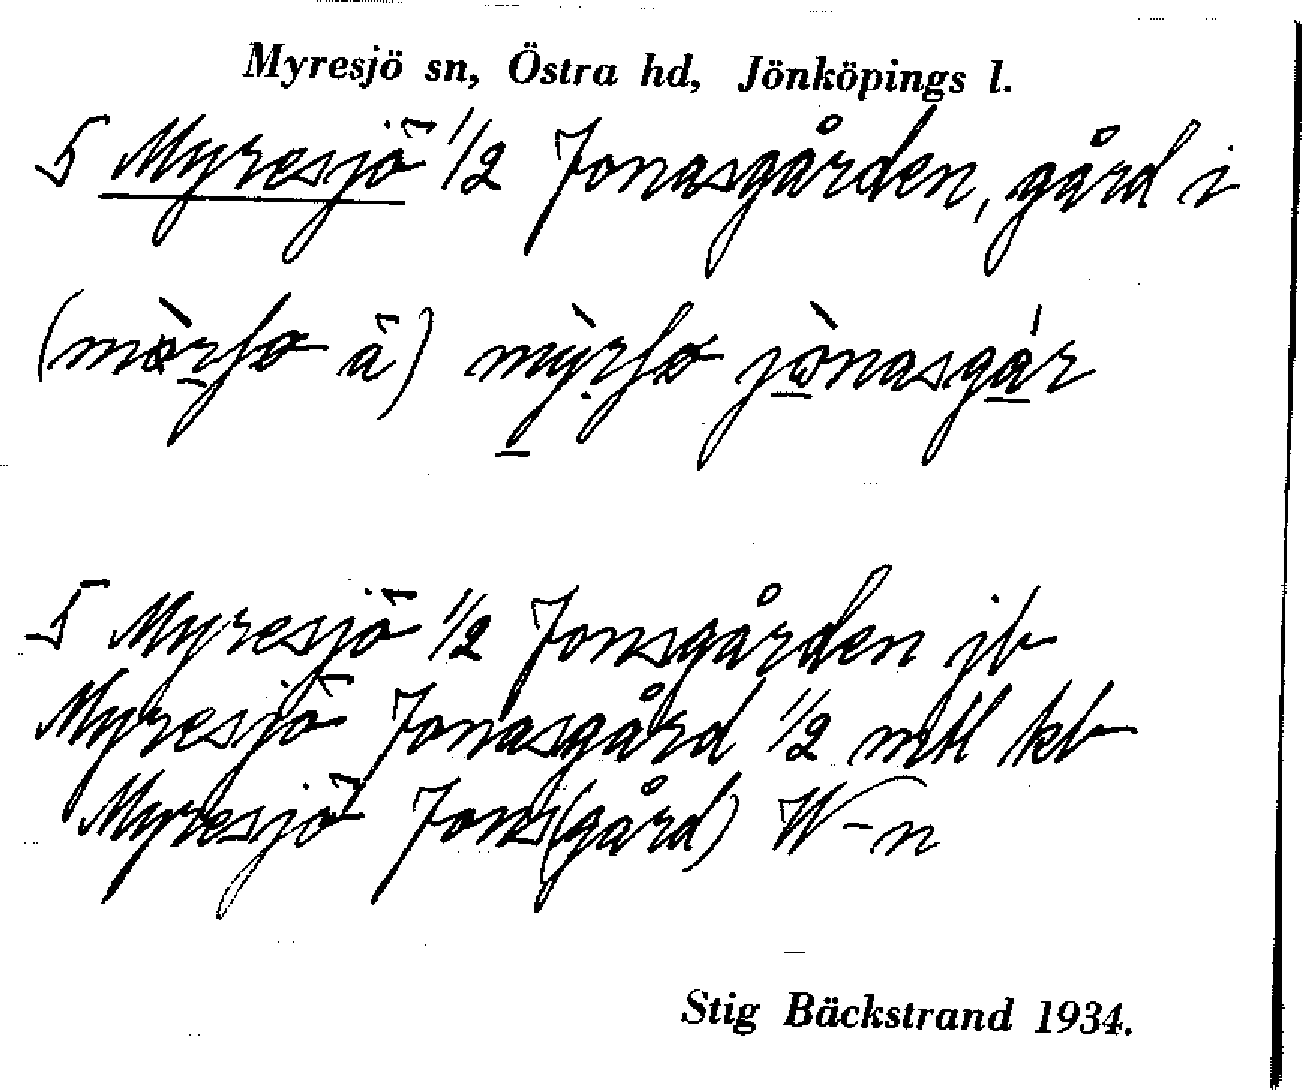 Myresjö sn, Östra hd, Jönköpings l.
5 Myresjö 1/2 Jonasgården, gård i
jònasgár
5 Myresjö 1/2 Jonsgården jb
Myresjö Jonasgård 1/2 mtl kb
Myresjö Jons(gård) W-n
Stig Bäckstrand 1934.